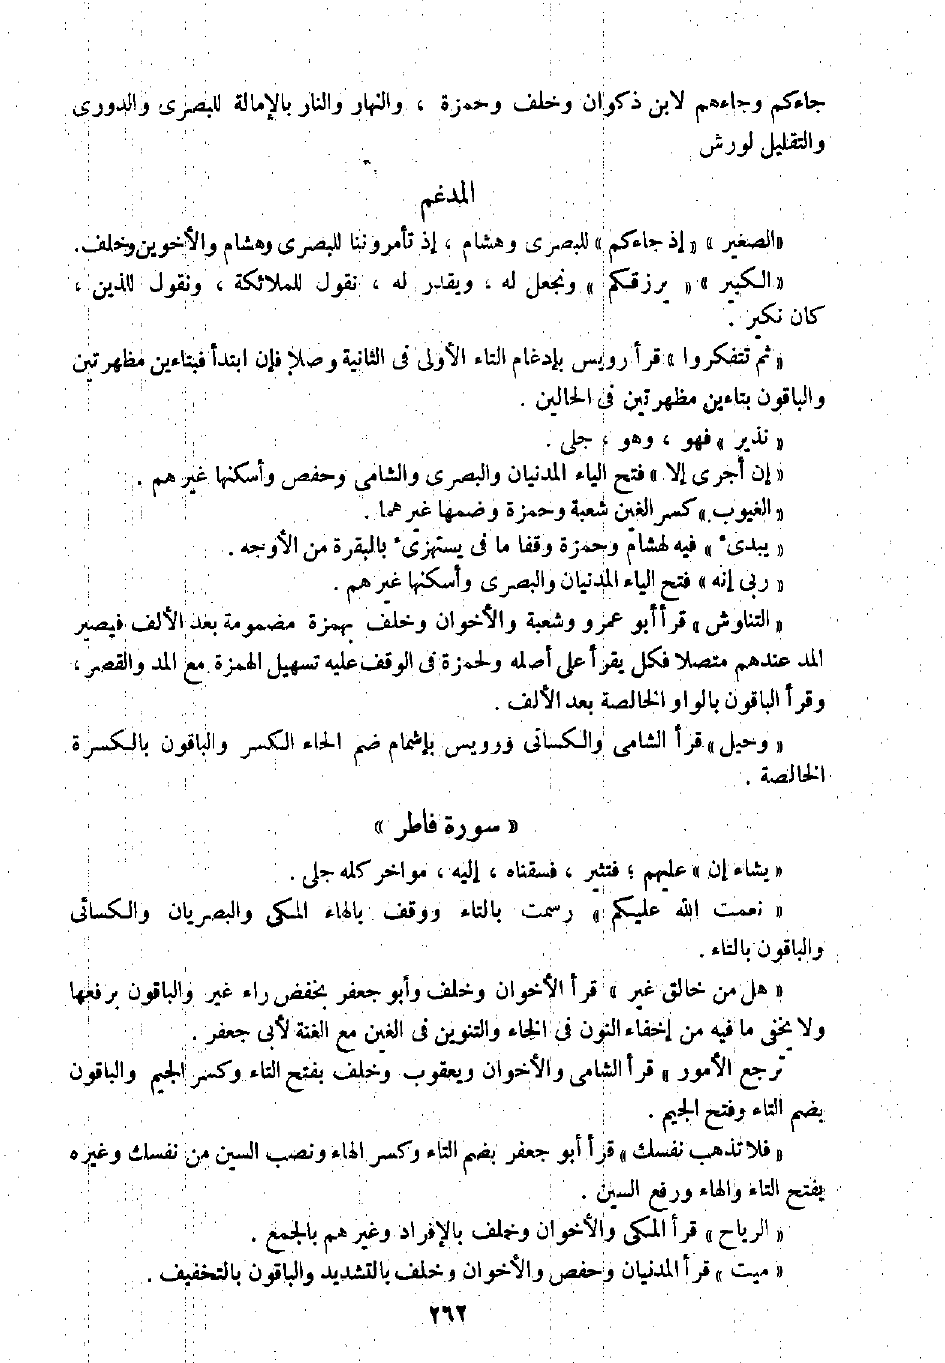 جاءكم وجاءهم لابن ذكوان وخلف وحمزة ، والنهار والنار بالإمالة للبصرى والدورى
والتقليل لورش
المدغم
«الصغير » « إذ جاءكم » للبصرى وهشام ، إذ تأمروننا للبصرى وهشام والأخوين وخلف.
« الكبير » « يرزقكم » ونجعل له ، ويقدر له ، نقول للملائكة ، ونقول للذين ،
كان نكير .
« ثم تتفكروا » قرأ رويس بإدغام التاء الأولى فى الثانية وصلا فإن ابتدأ فبتاءين مظهرتين
والباقون بتاءين مظهرتين فى الحالين .
« نذير » فهو ، وهو ، جلى .
« إن أجرى إلا » فتح الياء المدنيان والبصرى والشامى وحفص وأسكنها غيرهم .
« الغيوب » كسر الغين شعبة وحمزة وضمها غيرهما .
« يبدىء » فيه لهشام وحمزة وقفا ما فى يستهزىء بالبقرة من الأوجه .
« ربى إنه » فتح الياء المدنيان والبصرى وأسكنها غيرهم .
« التناوش » قرأ أبو عمرو وشعبة والأخوان وخلف بهمزة مضمومة بعد الألف فيصير
المد عندهم متصلا فكل يقرأ على أصله ولحمزة فى الوقف عليه تسهيل الهمزة مع المد والقصر ،
وقرأ الباقون بالواو الخالصة بعد الألف .
« وحيل » قرأ الشامى والكسائى ورويس بإشمام ضم الحاء الكسر والباقون بالكسرة
الخالصة .
« سورة فاطر »
« يشاء إن » عليهم ؛ فتثير ، فسقناه ، إليه ، مواخر كله جلى .
« نعمت الله عليكم » رسمت بالتاء ووقف بالهاء المكى والبصريان والكسائى
والباقون بالتاء .
« هل من خالق غير » قرأ الأخوان وخلف وأبو جعفر بخفض راء غير والباقون برفعها
ولا يخفى ما فيه من إخفاء النون فى الخاء والتنوين فى الغين مع الغنة لأبى جعفر .
ترجع الأمور » قرأ الشامى والأخوان ويعقوب وخلف بفتح التاء وكسر الجيم والباقون
بضم التاء وفتح الجيم .
« فلا تذهب نفسك » قرأ أبو جعفر بضم التاء وكسر الهاء ونصب السين من نفسك وغيره
بفتح التاء والهاء ورفع السين .
« الرياح » قرأ المكى والأخوان وخلف بالإفراد وغيرهم بالجمع .
« ميت » قرأ المدنيان وحفص والأخوان وخلف بالتشديد والباقون بالتخفيف .
٢٦٢